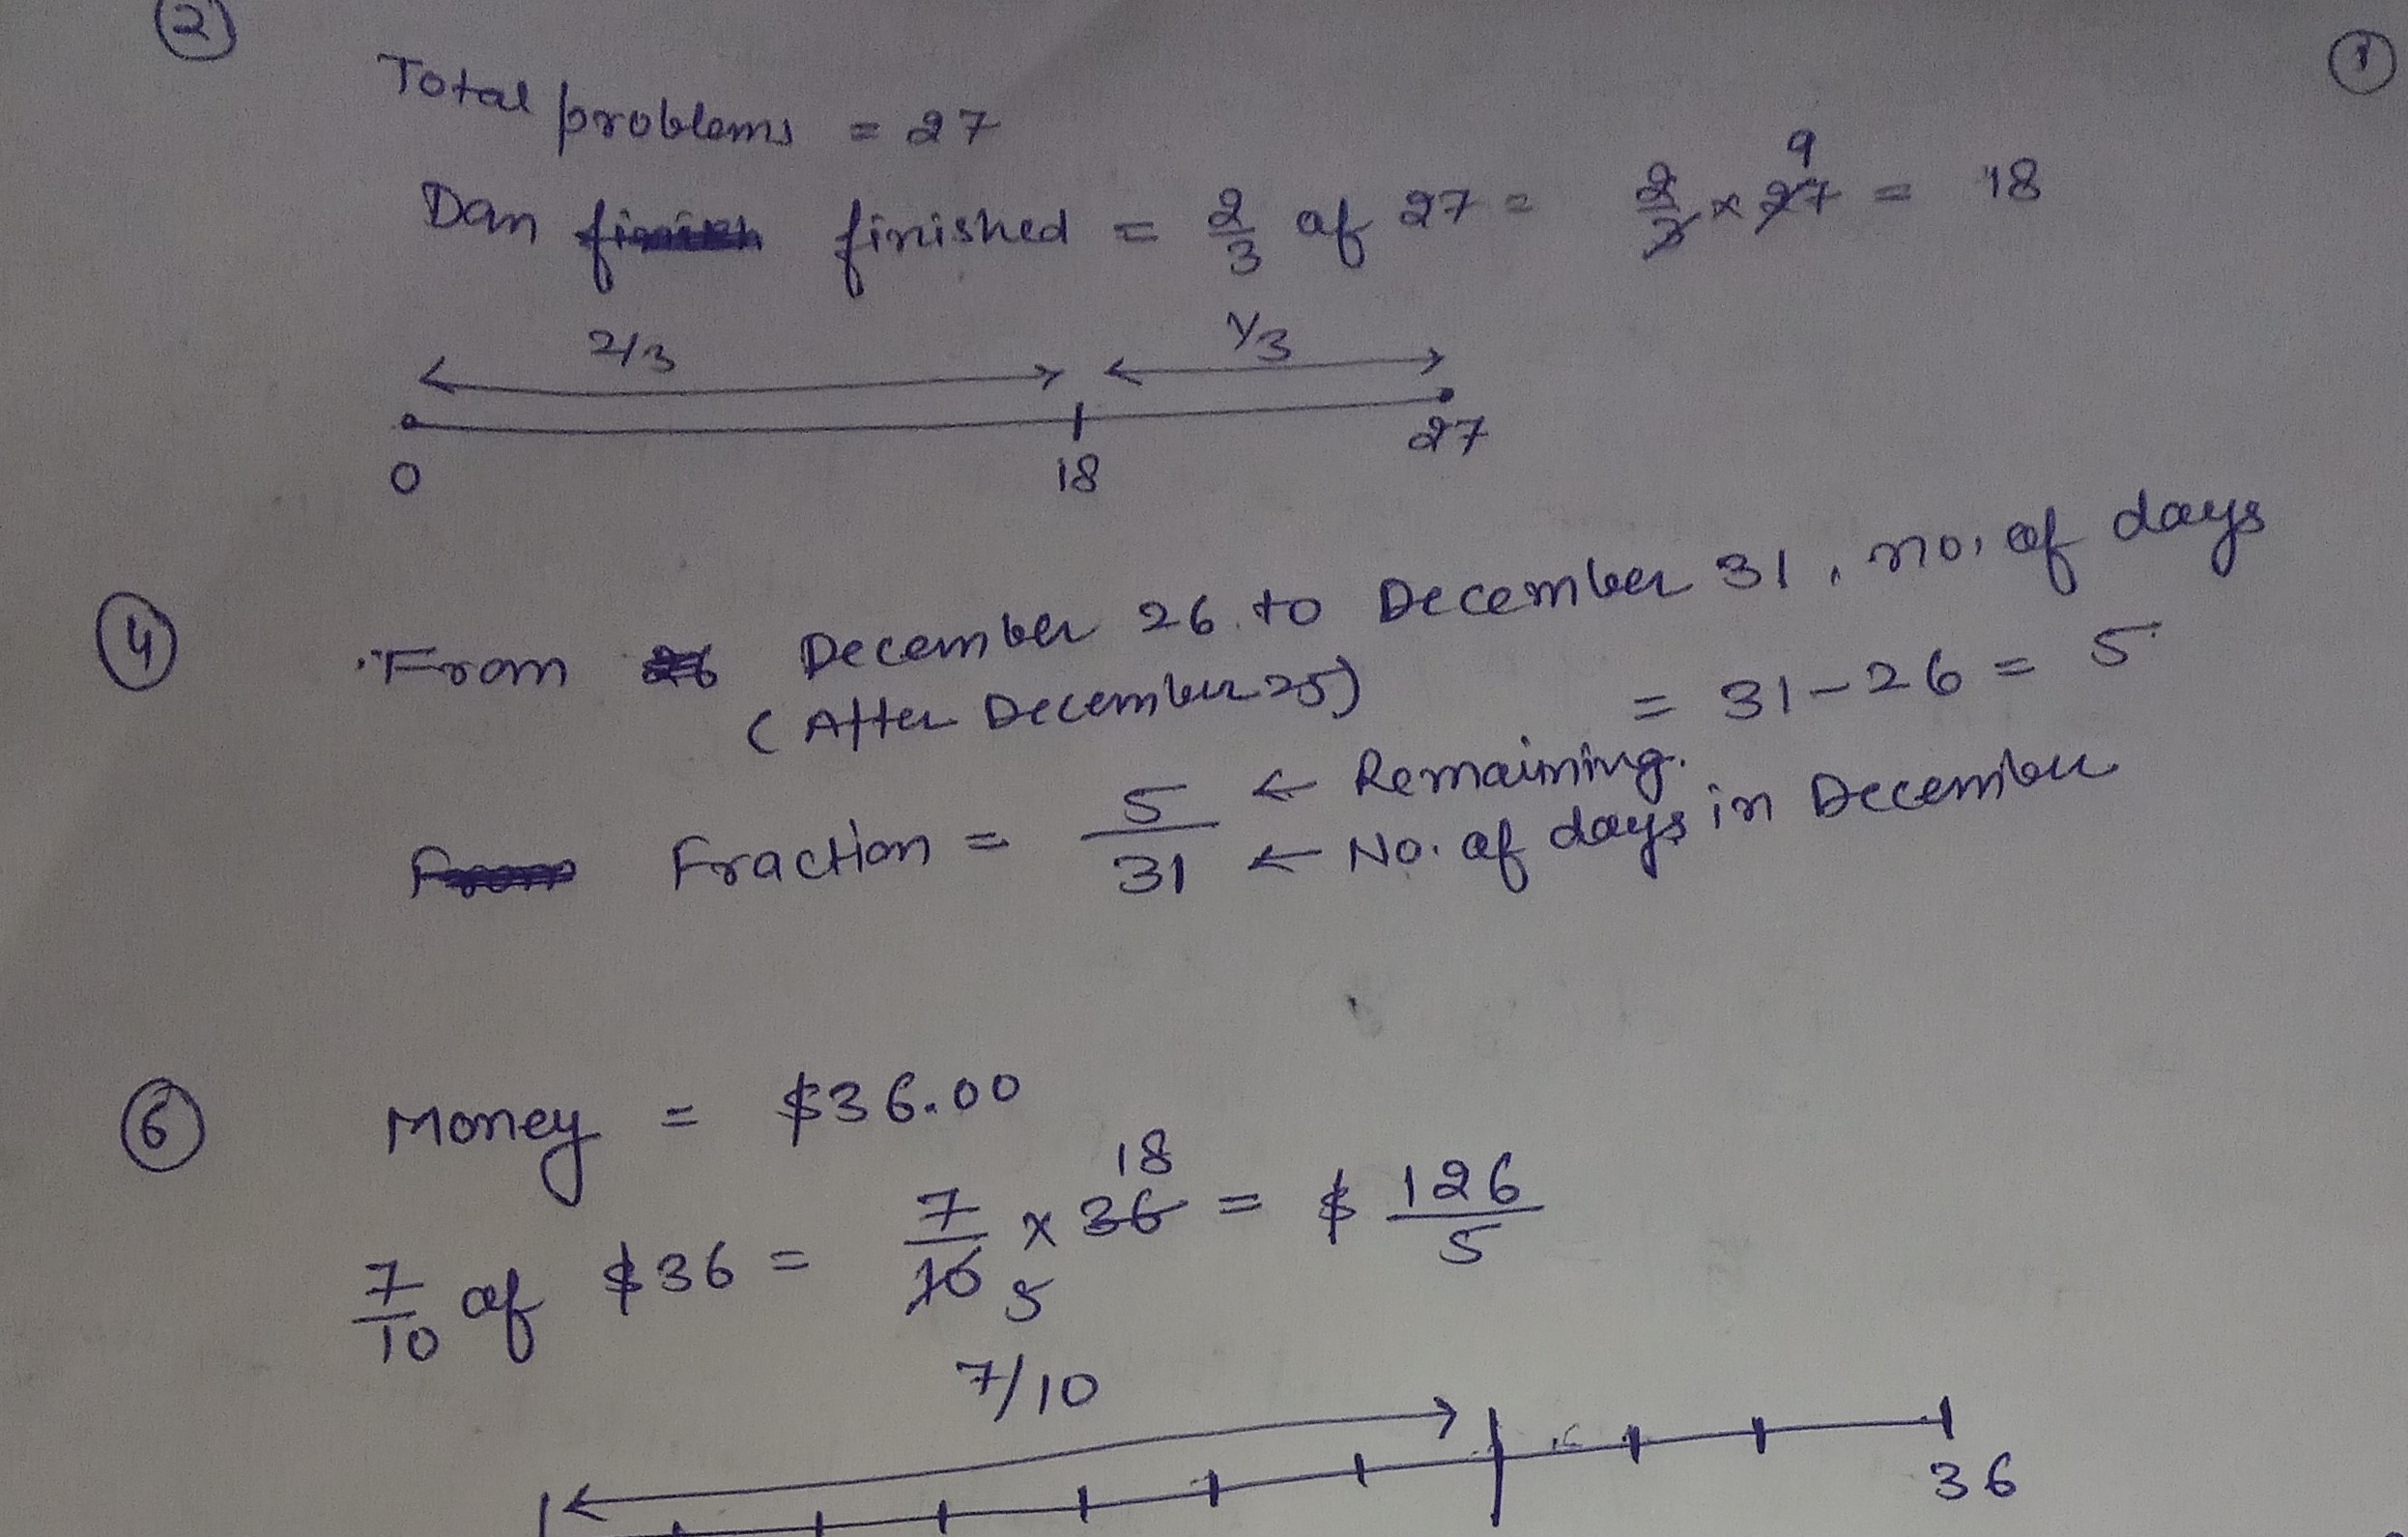 ②
①
Total problems = 27
Dan finished = 2/3 of 27 = 2/3 × 27 = 18
9
2/3 1/3
0 18 27
④ From December 26 to December 31, no. of days
(After December 25) = 31 - 26 = 5
Fraction = 5/31 ← Remaining.
← No. of days in December
⑥ Money = $36.00
7/10 of $36 = 7/10 × 36 = $ 126/5
18
5
7/10
36